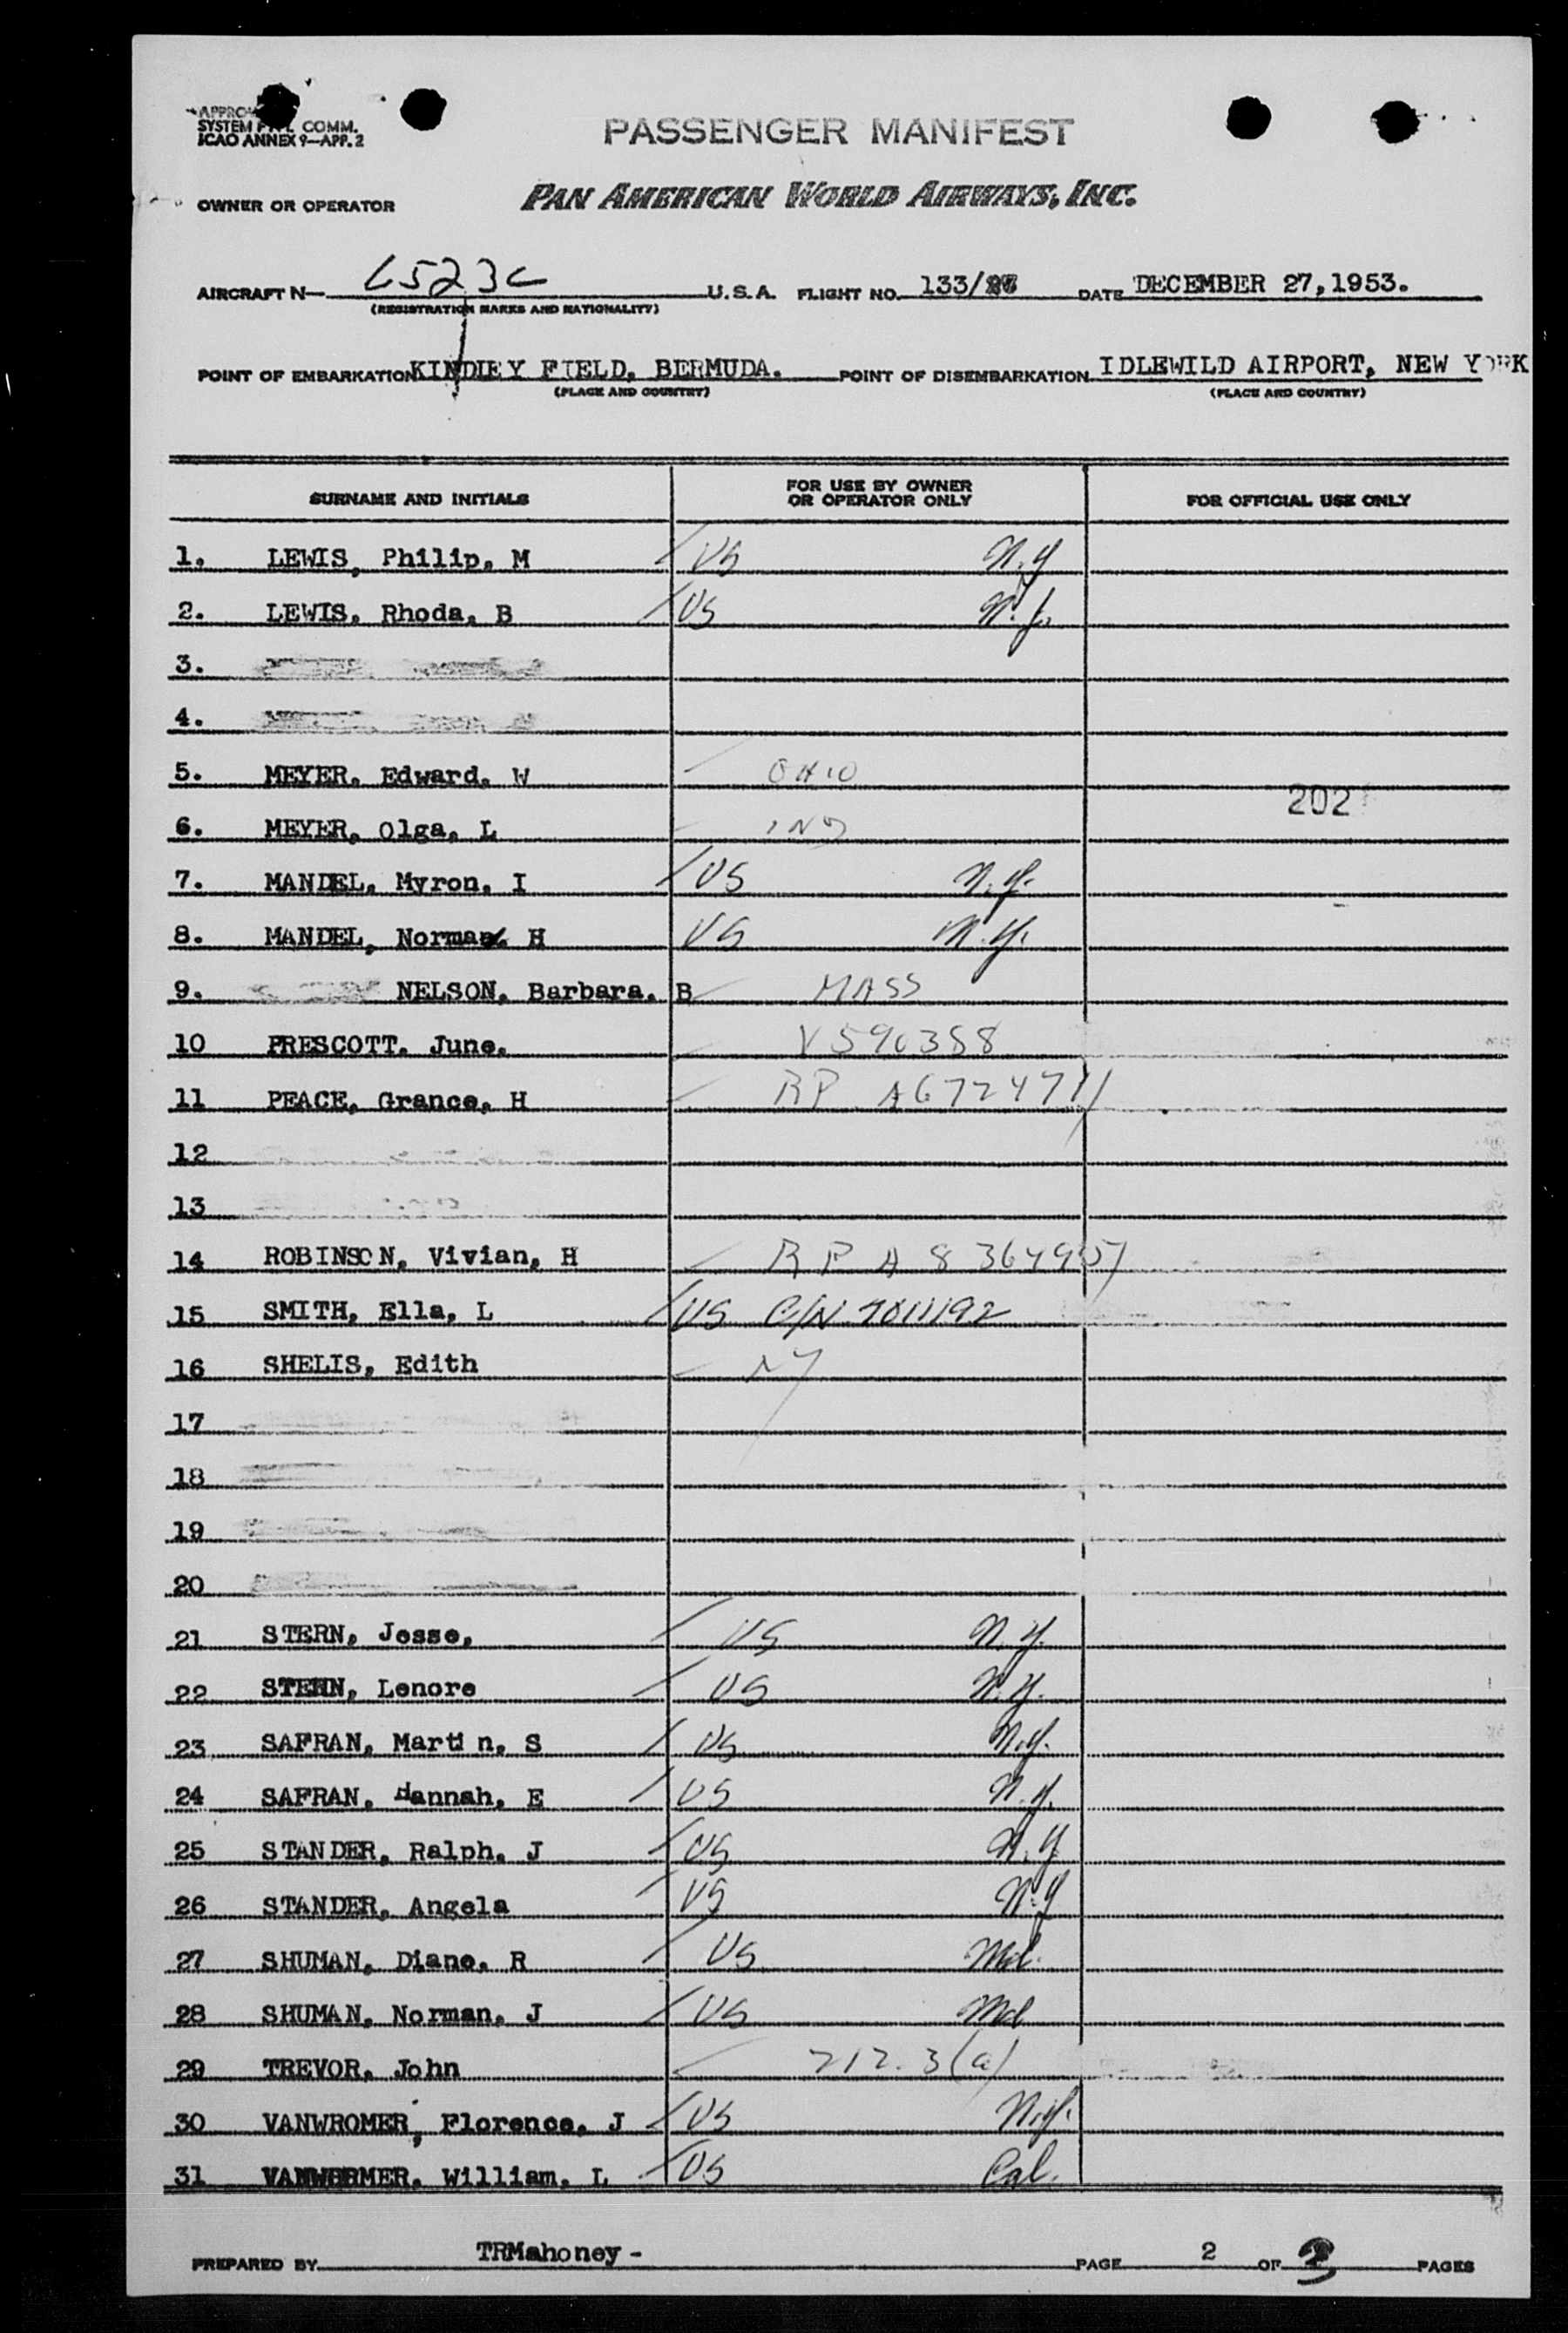 SYSTEM COMM.
ICAO ANNEX 9—APP. 2
PASSENGER MANIFEST
OWNER OR OPERATOR PAN AMERICAN WORLD AIRWAYS, INC.
AIRCRAFT N— 6523C U.S.A. FLIGHT NO. 133/ DATE DECEMBER 27,1953.
(REGISTRATION MARKS AND NATIONALITY)
POINT OF EMBARKATION KINDLEY FIELD, BERMUDA. POINT OF DISEMBARKATION IDLEWILD AIRPORT, NEW YORK
(PLACE AND COUNTRY) (PLACE AND COUNTRY)
SURNAME AND INITIALS FOR USE BY OWNER OR OPERATOR ONLY FOR OFFICIAL USE ONLY
1. LEWIS, Philip, M US N.Y
2. LEWIS, Rhoda, B US N.J.
3.
4.
5. MEYER, Edward, W OHIO
202
6. MEYER, Olga, L IND
7. MANDEL, Myron, I US N.Y.
8. MANDEL, Norma H US N.Y.
9. NELSON, Barbara, B MASS
10 PRESCOTT. June. V590358
11 PEACE, Grance, H RP A6724711
12
13
14 ROBINSON, Vivian, H RP A 8 364957
15 SMITH, Ella, L US C/N 7011192
16 SHELIS, Edith NY
17
18
19
20
21 STERN, Jesse, US N.Y.
22 STERN, Lenore US N.Y.
23 SAFRAN, Martin, S US N.Y.
24 SAFRAN, Hannah, E US N.Y.
25 STANDER, Ralph, J US N.Y
26 STANDER, Angela US N.Y
27 SHUMAN, Diane, R US Md.
28 SHUMAN, Norman, J US Md
29 TREVOR, John 212.3(a)
30 VANWROMER, Florence, J US N.Y.
31 VANWORMER. William, L US Cal.
PREPARED BY TRMahoney - PAGE 2 OF 3 PAGES